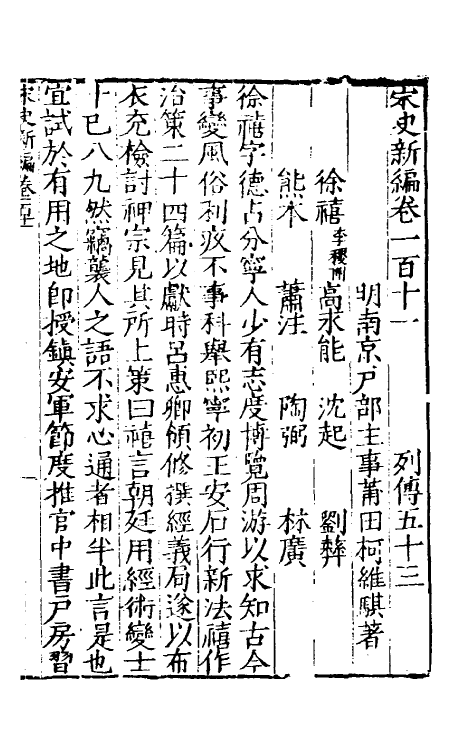 宋史新編卷一百十一 列傳五十三
明南京戸部主事莆田柯維騏著
徐禧李稷附 高永能 沈起 劉彝
熊本 蕭注 陶弼 林廣
徐禧字德占分寧人少有志度博覽周游以求知古今
事變風俗利疚不事科舉熙寧初王安石行新法禧作
治策二十四篇以獻時呂惠卿領修撰經義局遂以布
衣充檢討神宗見其所上策曰禧言朝廷用經術變士
十已八九然竊襲人之語不求心通者相半此言是也
宜試於有用之地即授鎮安軍節度推官中書戸房習
宋史新編卷